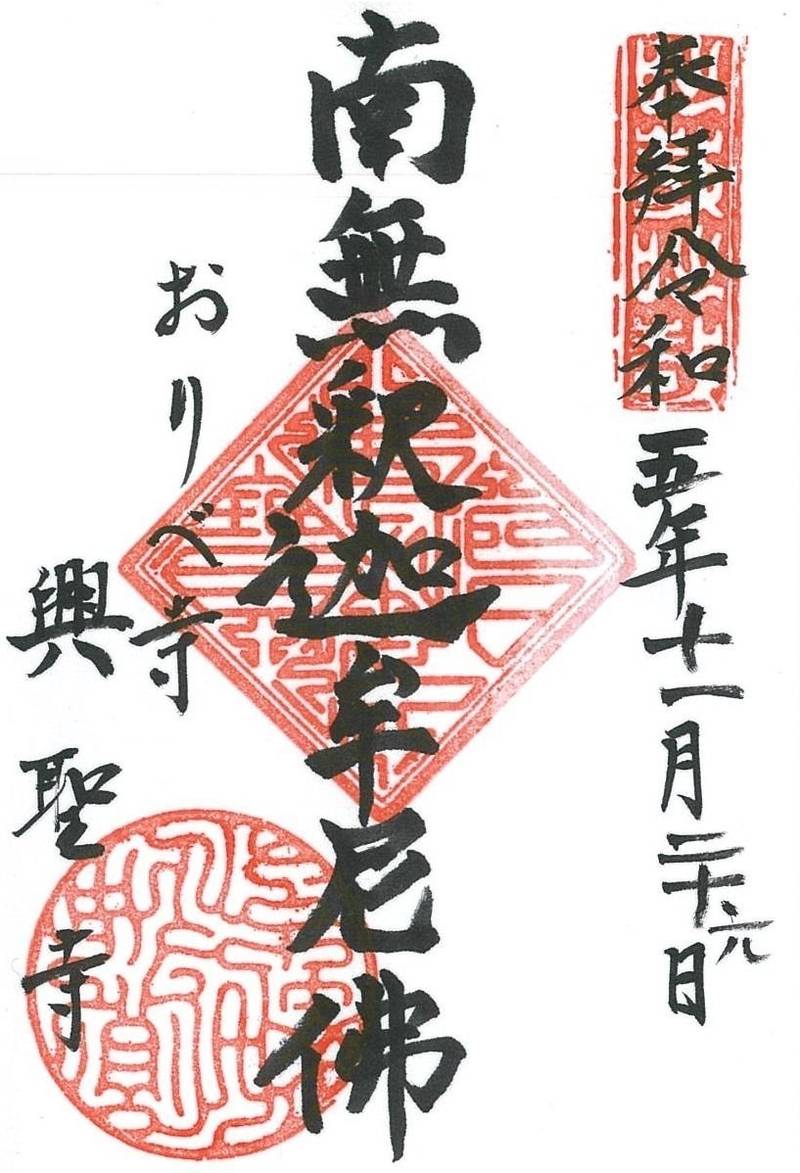 奉拝令和五年十一月二十六日
南無釈迦牟尼佛
おりべ寺
興聖寺